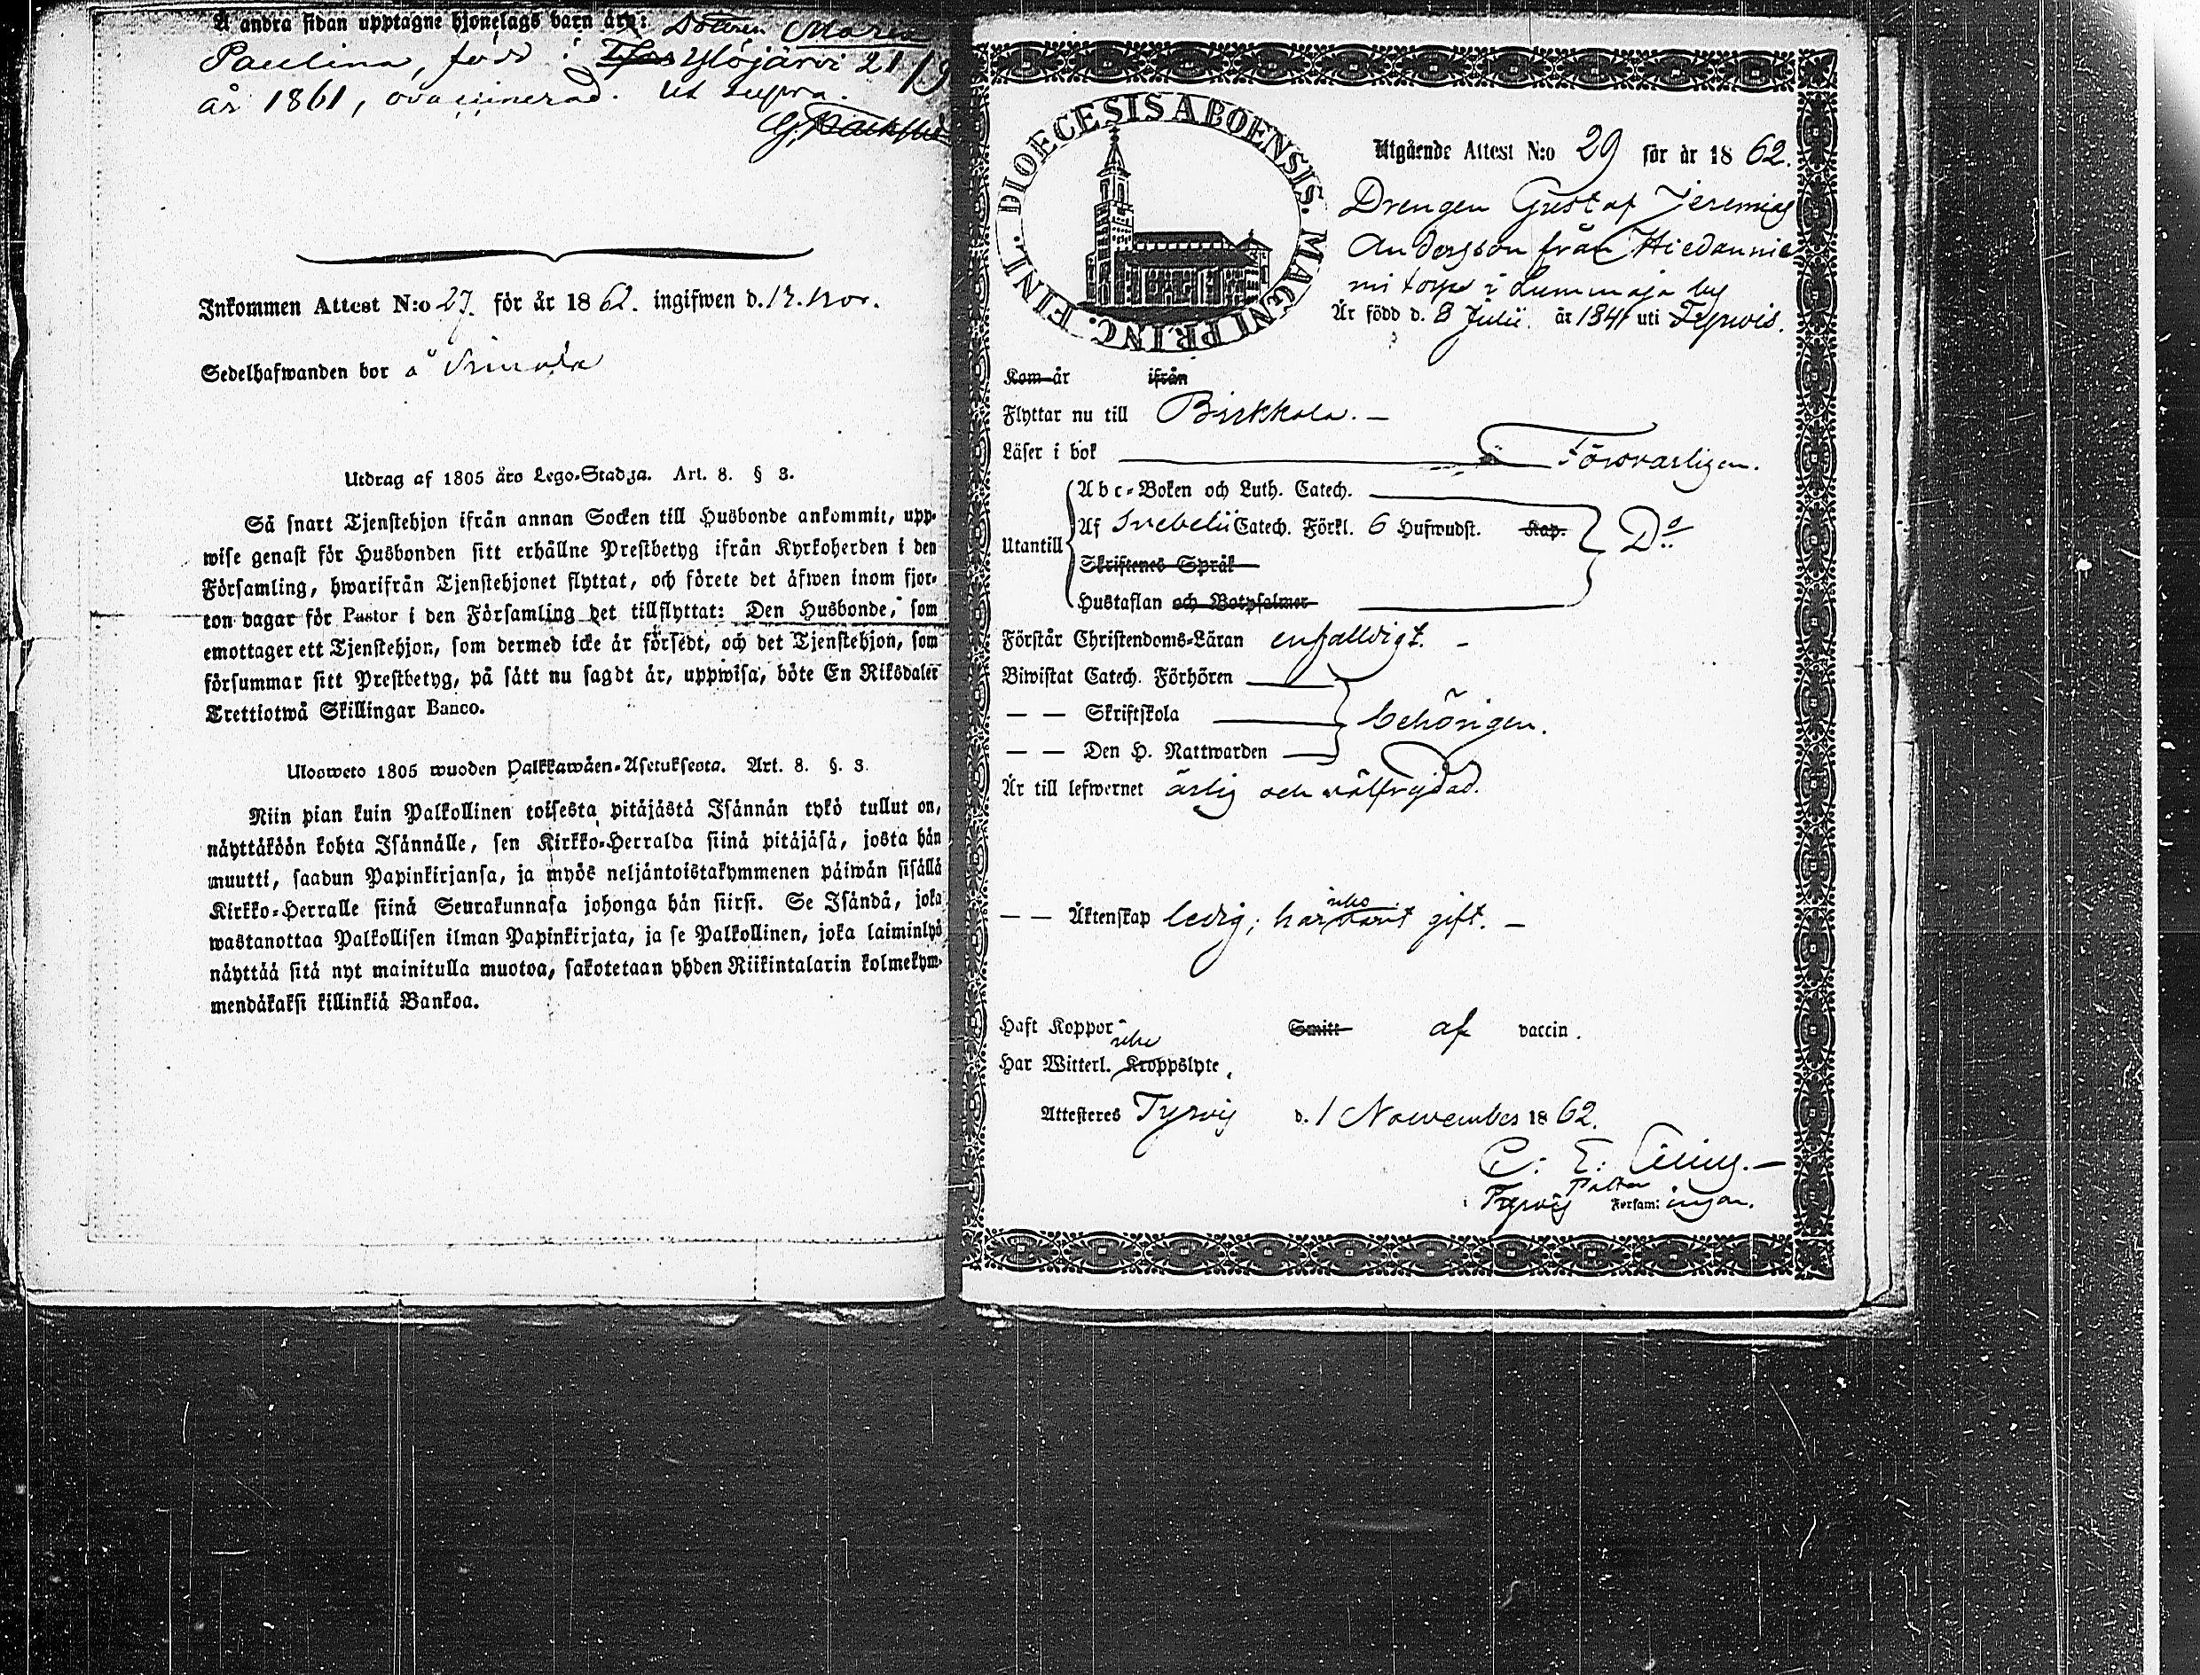 Å andra sidan upptagne hjonelags barn äro: Dottren Maria
Paulina, född i Ylöjärvi 21/9
år 1861, ovaccinerad. Ut supra.
Inkommen Attest N:o 27. för år 1862. ingifwen d. 12. Nov.
Sedelhafwanden bor å
Utdrag af 1805 års Lego-Stadga. Art. 8. § 3.
Så snart Tjenstehjon ifrån annan Socken till Husbonde ankommit, upp-
wise genast för Husbonden sitt erhållne Prestbetyg ifrån Kyrkoherden i den
Församling, hwarifrån Tjenstehjonet flyttat, och förete det äfwen inom fjor-
ton dagar för Pastor i den Församling det tillflyttat: Den Husbonde, som
emottager ett Tjenstehjon, som dermed icke är försedt, och det Tjenstehjon, som
försummar sitt Prestbetyg, på sätt nu sagdt är, uppwisa, böte En Riksdaler
Trettiotwå Skillingar Banco.
Ulosweto 1805 wuoden Palkkawäen-Asetuksesta. Art. 8. §. 3.
Niin pian kuin Palkollinen toisesta pitäjästä Isännän tykö tullut on,
näyttäköön kohta Isännälle, sen Kirkko-Herralda siinä pitäjäsä, josta hän
muutti, saadun Papinkirjansa, ja myös neljäntoistakymmenen päiwän sisällä
Kirkko-Herralle siinä Seurakunnasa johonga hän siirsi. Se Isändä, joka
wastanottaa Palkollisen ilman Papinkirjata, ja se Palkollinen, joka laiminlyö
näyttää sitä nyt mainitulla muotoa, sakotetaan yhden Riikintalarin kolmekym-
mendäkaksi killinkiä Bankoa.
DIOECESIS ABOENSIS. MAGNI PRINC. FINL.
Utgående Attest N:o 29 för år 1862.
Drengen Gustaf Jeremias
Andersson från Hiedannie
mi torp i Lummaja by
Är född d. 8 Julii. år 1841 uti Tyrwis.
Kom år ifrån
Flyttar nu till Birkkala. —
Läser i bok Försvarligen.
Abc-Boken och Luth. Catech.
Utantill Af Svebelii Catech. Förkl. 6 Hufwudst. Kap. Do
Skriftenes Språk
Hustaflan och Botpsalmer
Förstår Christendoms-Läran enfalldigt. –
Biwistat Catech. Förhören
— — Skriftskola behörigen.
— — Den H. Nattwarden
Är till lefwernet ärlig och wälfrejdad.
— — Äktenskap ledig; har icke warit gift. —
Haft Koppor Smitt af vaccin.
Har Witterl. icke Kroppslyte.
Attesteres Tyrvis d. 1 November 1862.
C: E:
Tyrvis Försam: ingar.